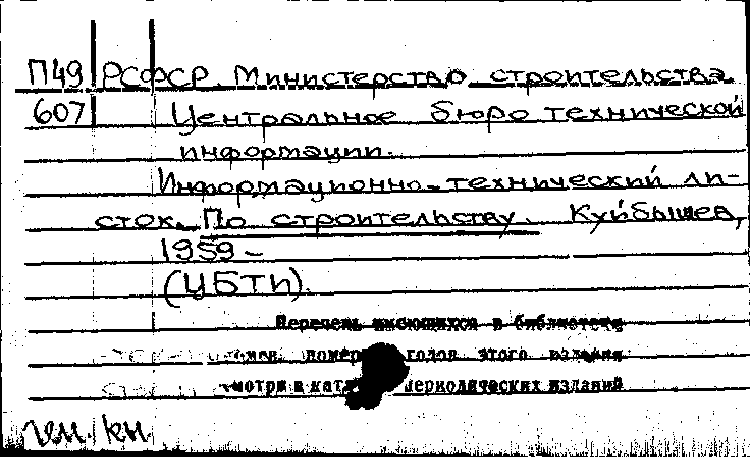 П49 РСФСР. Министерство строительства.
607 Центральное бюро технической
информации.
Информационно-технический ли-
сток. По строительству. Куйбышев,
1959 –
(ЦБТИ).
Перечень имеющихся в библиотеке
номер годов этого издания
смотри в периодических изданий